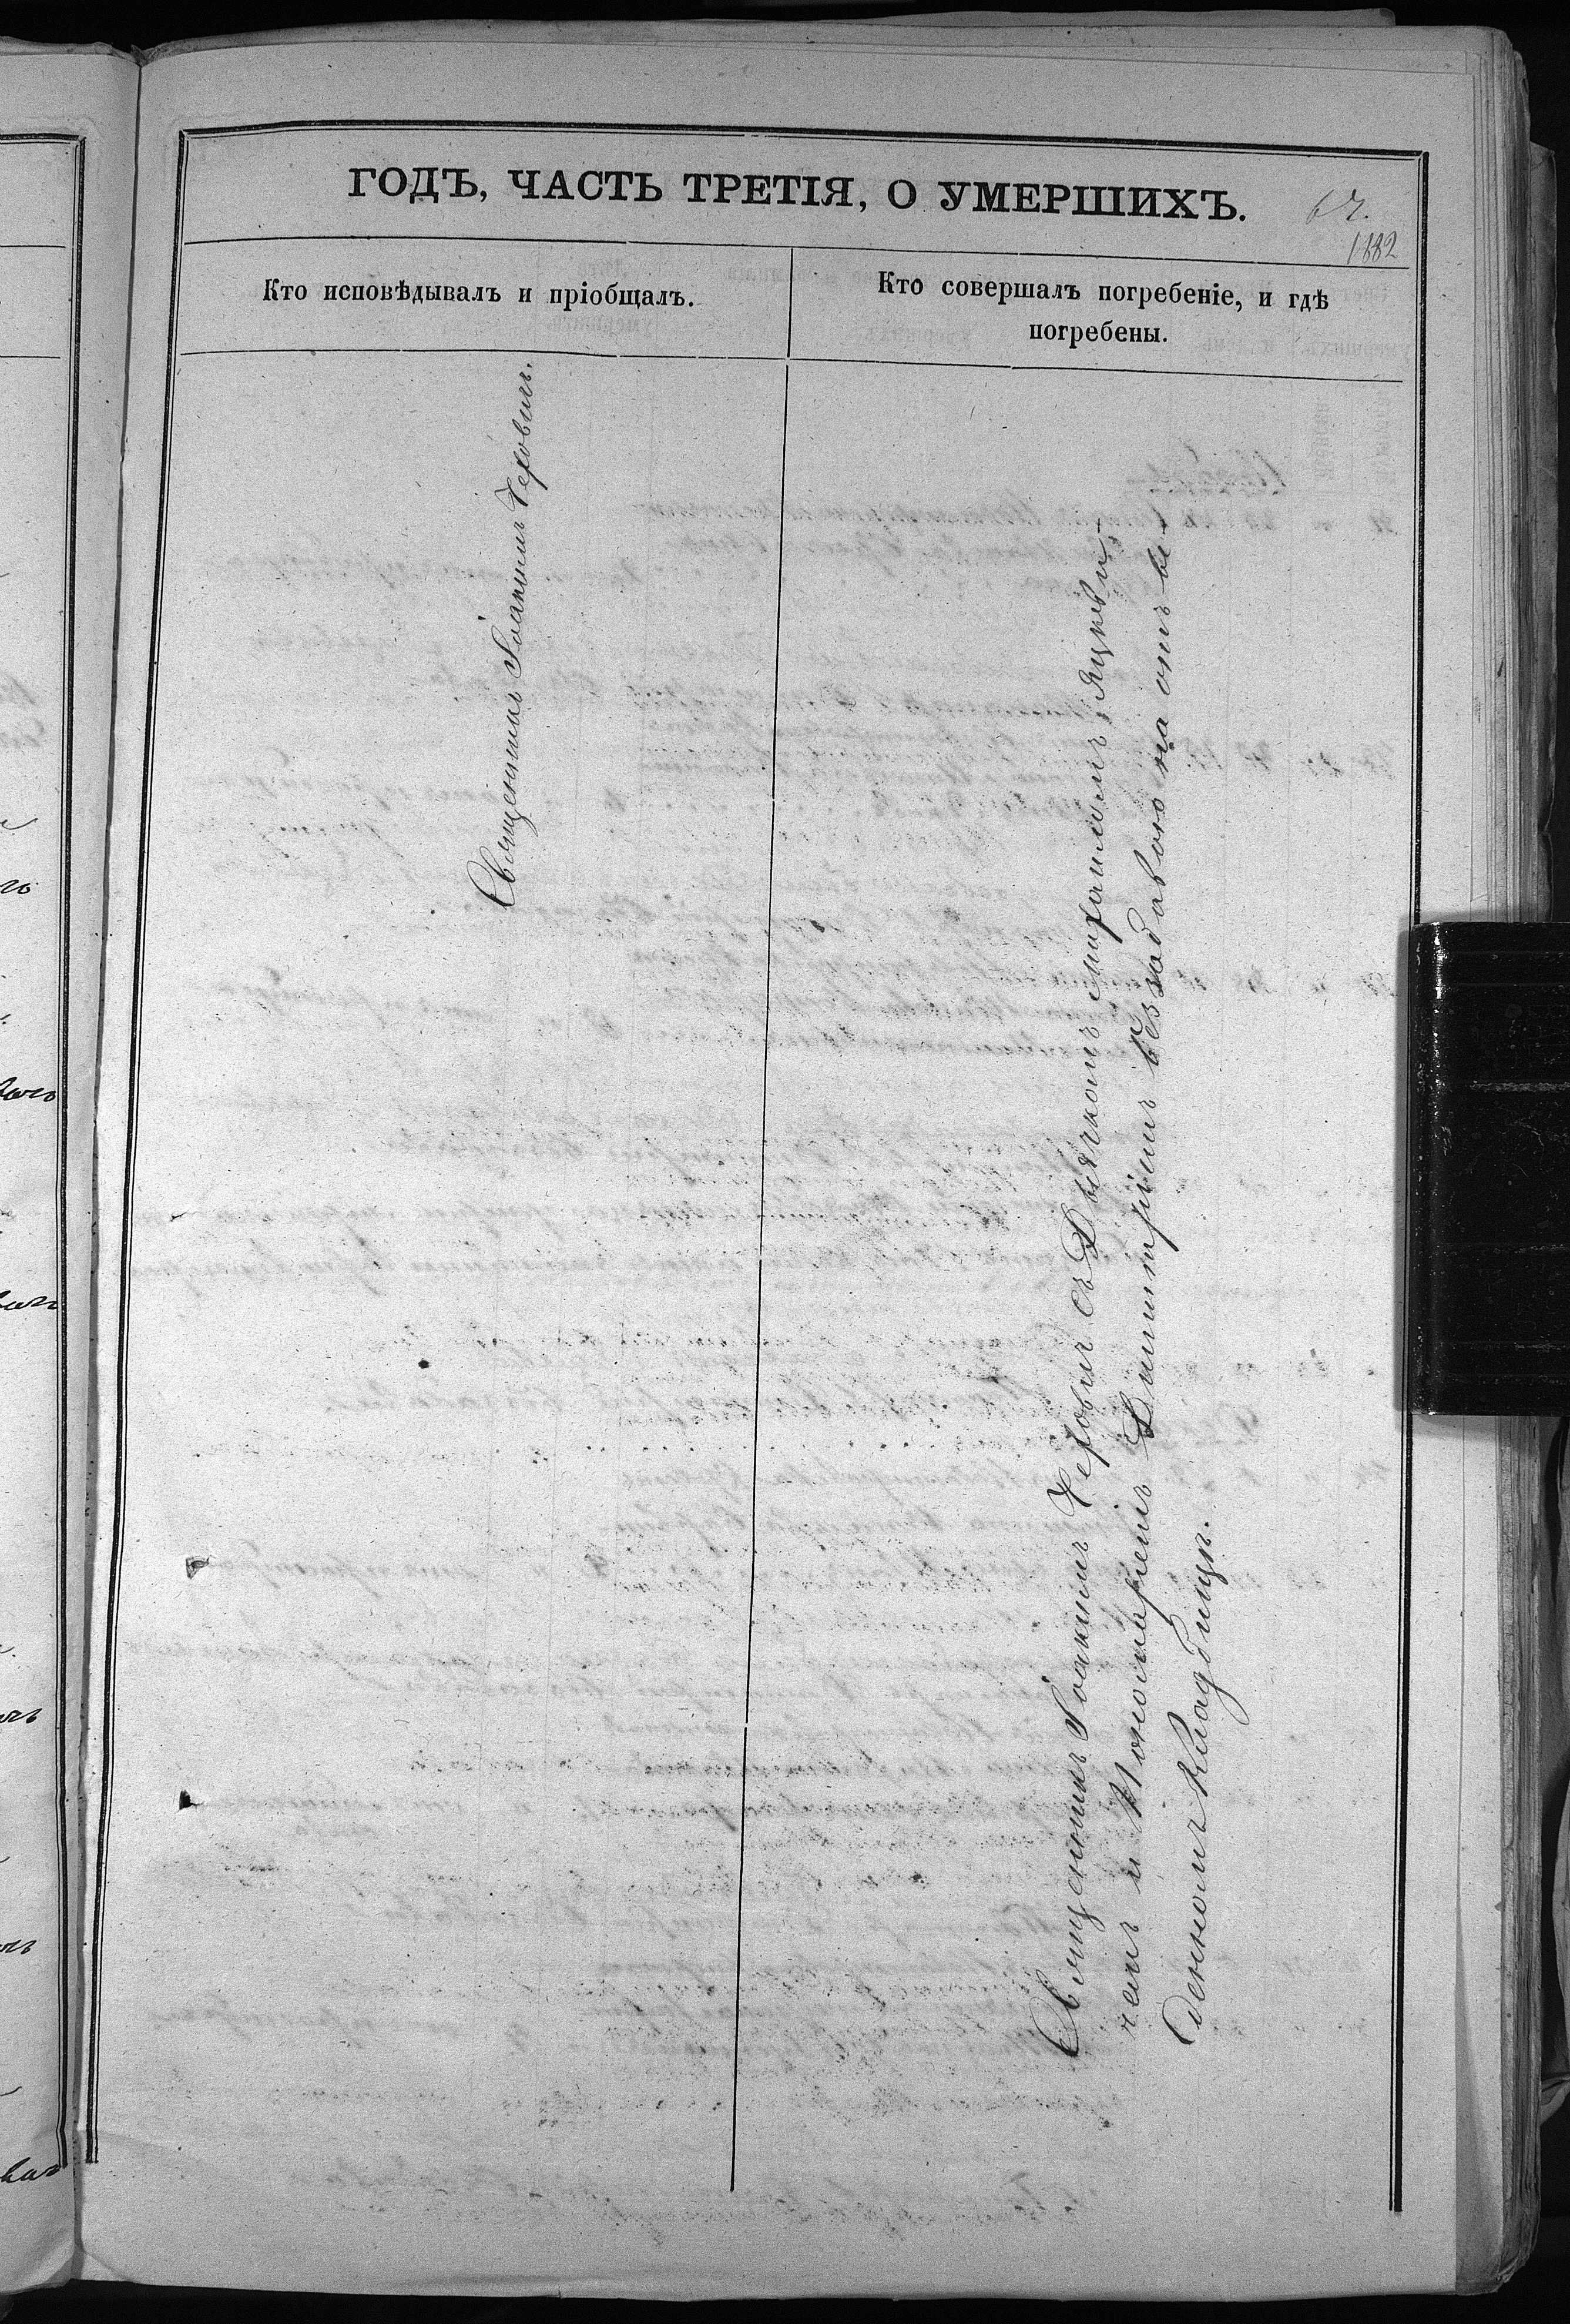 ГОДЪ, ЧАСТЬ ТРЕТІЯ, О УМЕРШИХЪ.
1882
Кто исповѣдывалъ и пріобщалъ.
Кто совершалъ погребеніе, и гдѣ
погребены.
Священникъ Іоакимъ Херовичъ.
Священникъ Іоакимъ Херовичъ съ Дьячкомъ Михаиломъ Яцкеви-
чемъ и Пономаремъ Димитріемъ Беззабавою на отве-
денномъ кладбищѣ.